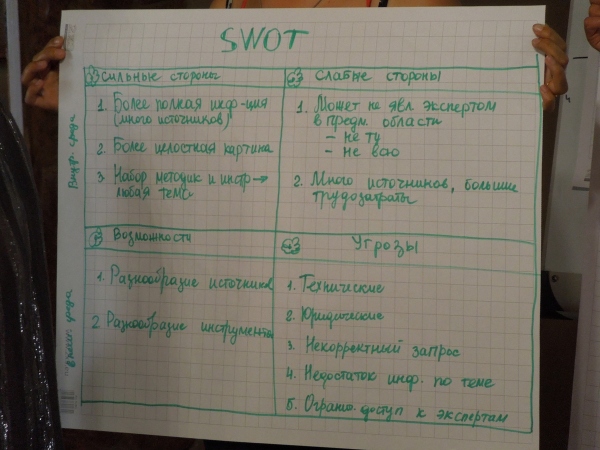 SWOT
Сильные стороны
1. Более полная инф-ция
(много источников)
2. Более целостная картина
3. Набор методик и инстр →
любая тема
Слабые стороны
1. Может не явл. экспертом
в предм. области
- не ту
- не всю
2. Много источников, большие
трудозатраты
Внутр. среда
Возможности
1. Разнообразие источников
2. Разнообразие инструментов
Угрозы
1. Технические
2. Юридические
3. Некорректный запрос
4. Недостаток инф. по теме
5. Огранич. доступ к экспертам
среда